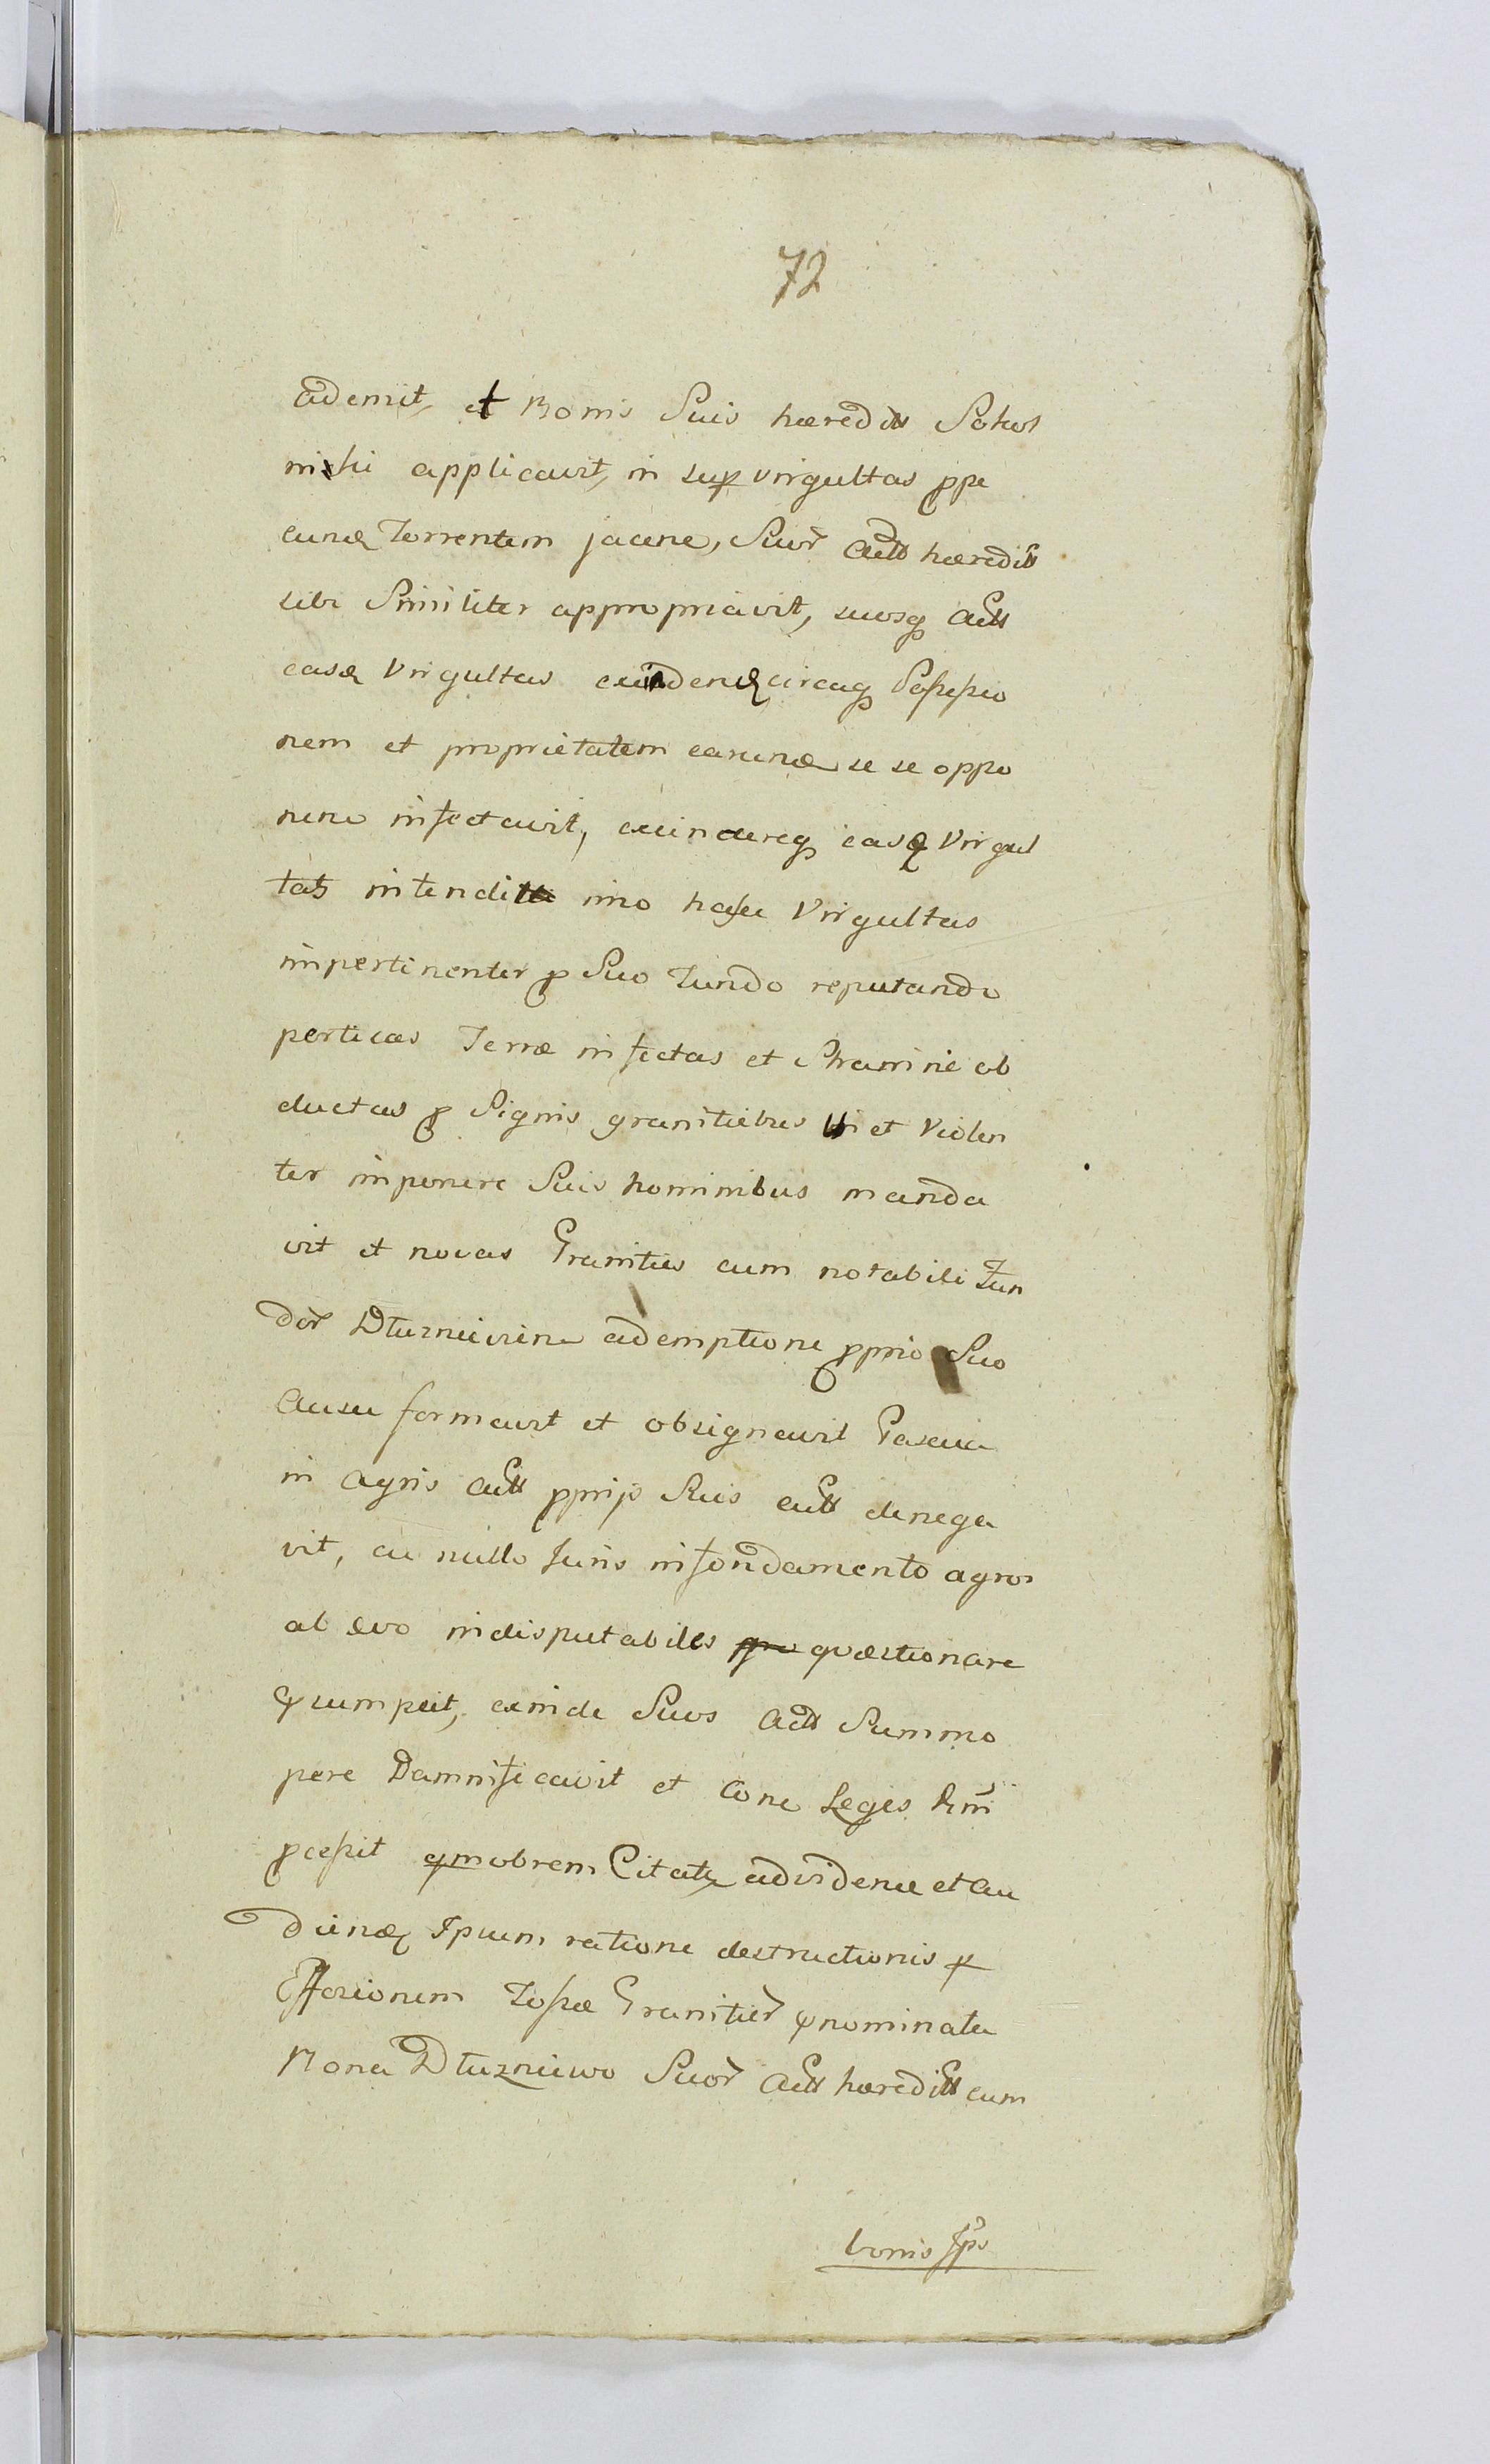 72
ademit, et Bonis Suis hæredits Sokoł
nicki applicavit, in sup virgultas ppe
eund Torrentem jacene, Suor Actt hæreditt
sibi Similiter appropriavit, suosq Actt
easd Virgultas circaq Possessio
nem et proprietatem earund se se oppo
nene infectavit, easd Virgul
tas intendit imo hasce Virgultas
impertinenter p Suo Fundo reputando
perticas Terræ infectas et Stramine ob
ductas p Signis granitiebus Vi et Violen
ter imponere Suis hominibus manda
vit et novas Granities cum notabili Fun
dor Dłuzniewiene ademptione pprio Suo
Ausu formavit et obsignavit Pascua
in Agris Actt pprijs Suis Actt denega
vit, ac nullo Juris infondamento agros
ab ævo indisputabiles quæstionare
psumpsit, exinde Suos Actt Summo
pere Damnificavit et Leges
pcessit qmobrem Citatg advidene et Au
diend Ipsum ratione destructionis et
Effosionem Fossæ Granitier pnominata
Bona Dłuzniewo Suor Actt hæreditt cum
bonis